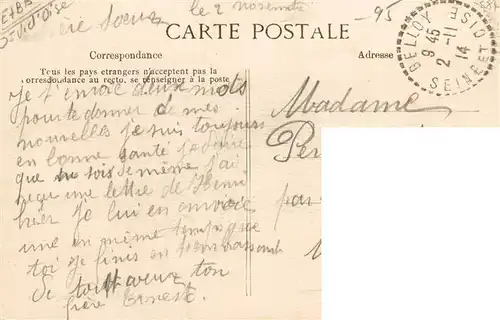 le 2 novembre
-95
CARTE POSTALE
BELLOY SEINE ET OISE
9 45
2 -11
14
Correspondance
Adresse
Tous les pays etrangers n'acceptent pas la
correspondance au recto, se renseigner à la poste
Je t'envoie deux mots
pour te donner de mes
nouvelles je suis toujours
en bonne santé je désire
que tu sois de même j'ai
reçu une lettre de Henri
hier je lui en envoie
une en même temps que
toi je finis en t'embrassant
de tout coeur ton
frère Ernest
Madame
Per
pa